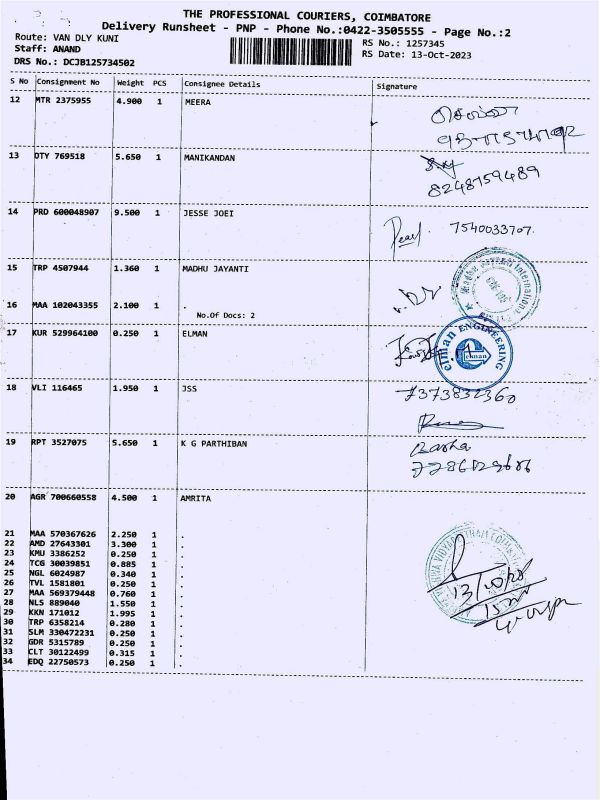 THE PROFESSIONAL COURIERS, COIMBATORE
Delivery Runsheet - PNP - Phone No.:0422-3505555 - Page No.:2
Route: VAN DLY KUNI
RS No.: 1257345
Staff: ANAND
RS Date: 13-Oct-2023
DRS No.: DCJB125734502
S No Consignment No Weight PCS Consignee Details Signature
12 MTR 2375955 4.900 1 MEERA
13 DTY 769518 5.650 1 MANIKANDAN
8248759489
14 PRD 600048907 9.500 1 JESSE JOEI
Pearl. 7540033707.
15 TRP 4507944 1.360 1 MADHU JAYANTI
16 MAA 102043355 2.100 1 .
No.Of Docs: 2
17 KUR 529964100 0.250 1 ELMAN
elman ENGINEERING
elman
18 VLI 116465 1.950 1 JSS
7373832360
19 RPT 3527075 5.650 1 K G PARTHIBAN
20 AGR 700660558 4.500 1 AMRITA
21 MAA 570367626 2.250 1 .
22 AMD 27643301 3.300 1 .
23 KMU 3386252 0.250 1 .
24 TCG 30039851 0.885 1 .
25 NGL 6024987 0.340 1 .
26 TVL 1581801 0.250 1 .
27 MAA 569379448 0.760 1 .
28 NLS 889040 1.550 1 .
29 KKN 171012 1.995 1 .
30 TRP 6358214 0.280 1 .
31 SLM 330472231 0.250 1 .
32 GDR 5315789 0.250 1 .
33 CLT 30122499 0.315 1 .
34 EDQ 22750573 0.250 1 .